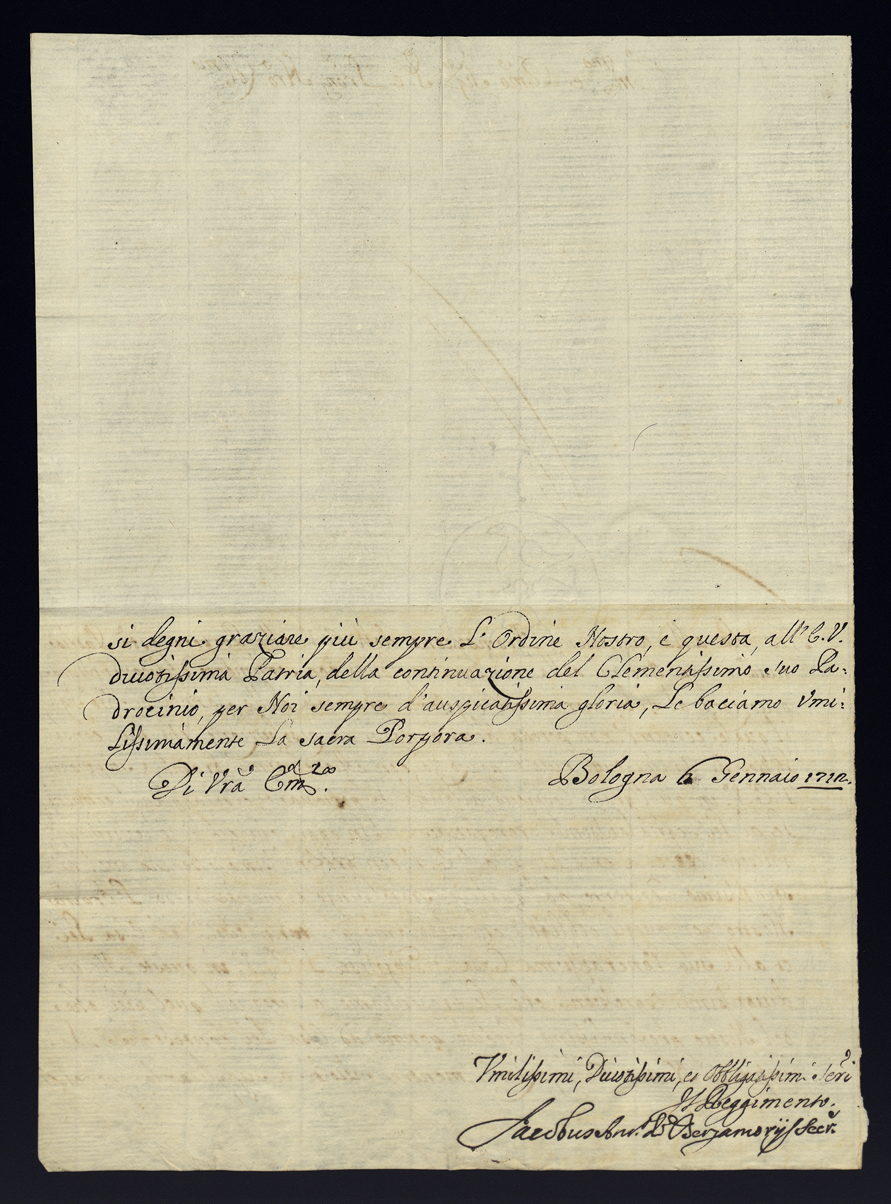 si degni graziare più sempre L'Ordine Nostro, e questa, all'E. V.
divotissima Patria, della continuazione del Clementissimo suo Pa-
drocinio, per Noi sempre d'auspicatissima gloria, Le baciamo Vmi-
lissimamente La sacra Porpora.
Di Vrã Em.za
Bologna 6 Gennaio 1712.
Vmilissimi, Divotissimi, et Obbligatissimi Serri
Il Reggimento.
Jacobus Ant.